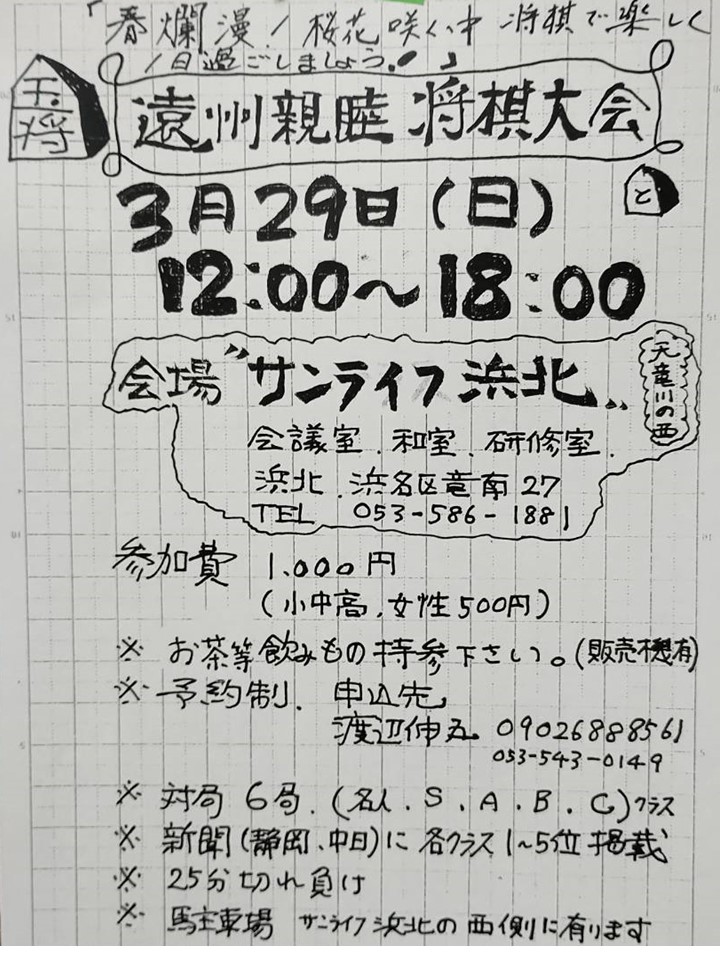 「春爛漫！桜花咲く中 将棋で楽しく
1日過ごしましょう！」
玉将
遠州親睦将棋大会
と
3月29日(日)
12:00〜18:00
会場 "サンライフ浜北"
天竜川の西
会議室、和室、研修室、
浜北 浜名区竜南27
TEL 053-586-1881
参加費 1,000円
(小中高、女性500円)
※ お茶等飲みもの持参下さい。(販売機有)
※ 予約制、申込先
渡辺伸丸 09026888561
053-543-0149
※ 対局 6局、(名人、S、A、B、C)クラス
※ 新聞(静岡、中日)に各クラス1~5位掲載
※ 25分切れ負け
※ 駐車場 サンライフ浜北の西側に有ります